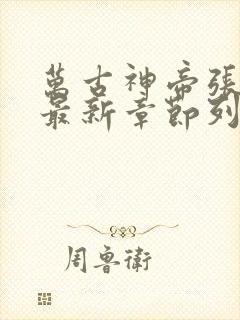 萬古神帝張
最新章節列
周魯衛